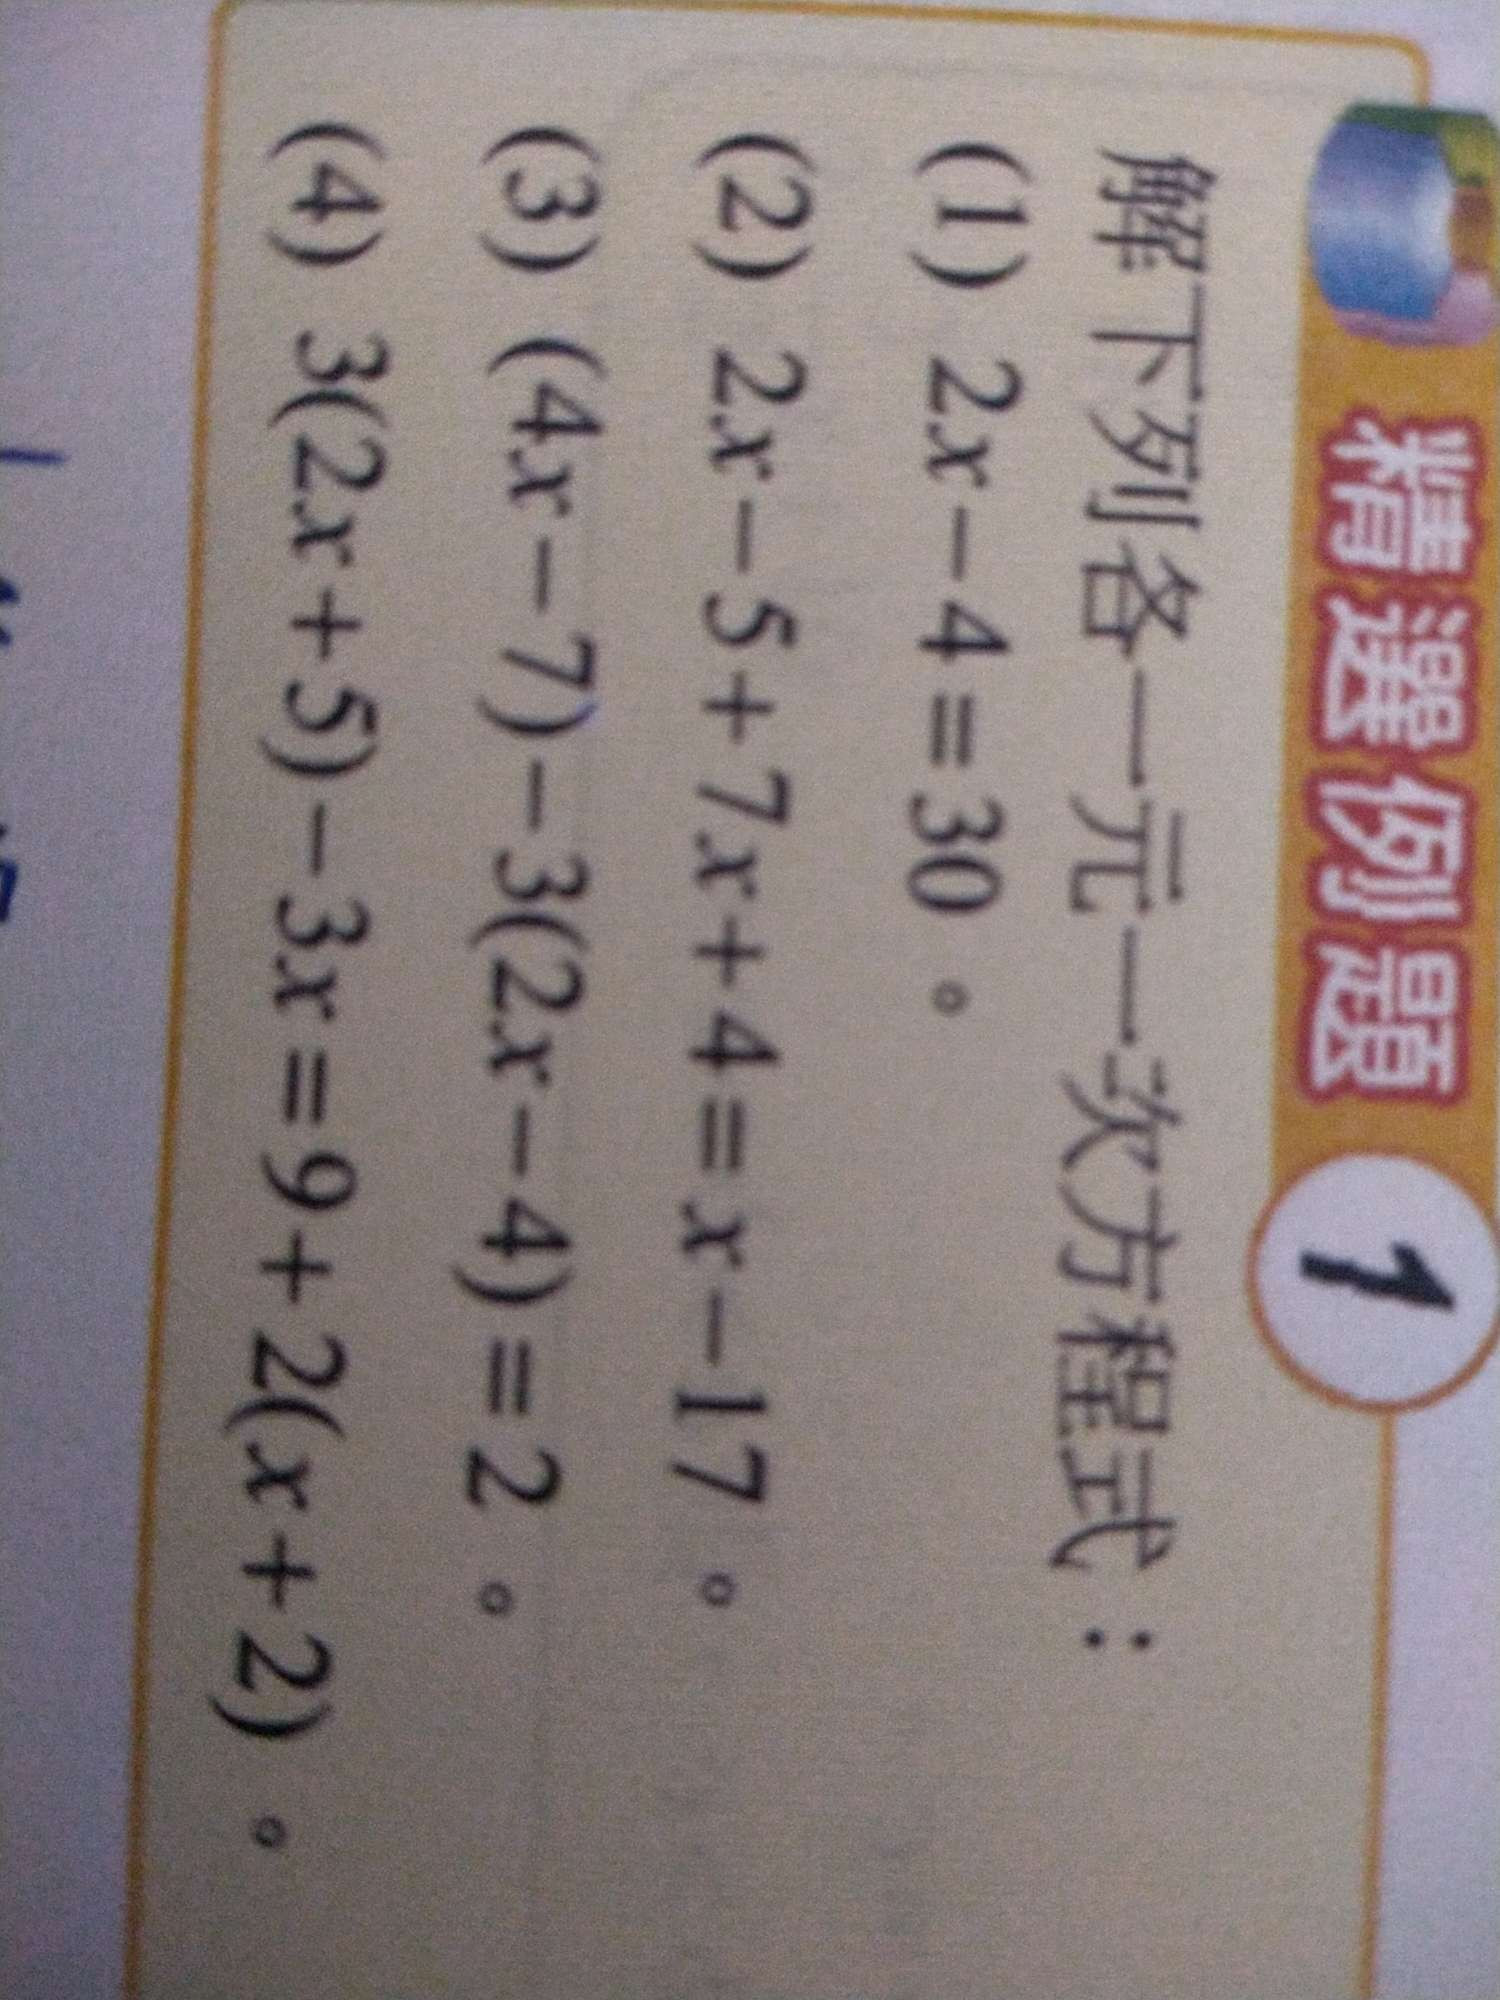 精選例題 1
解下列各一元一次方程式：
(1) 2x－4＝30。
(2) 2x－5＋7x＋4＝x－17。
(3) (4x－7)－3(2x－4)＝2。
(4) 3(2x＋5)－3x＝9＋2(x＋2)。